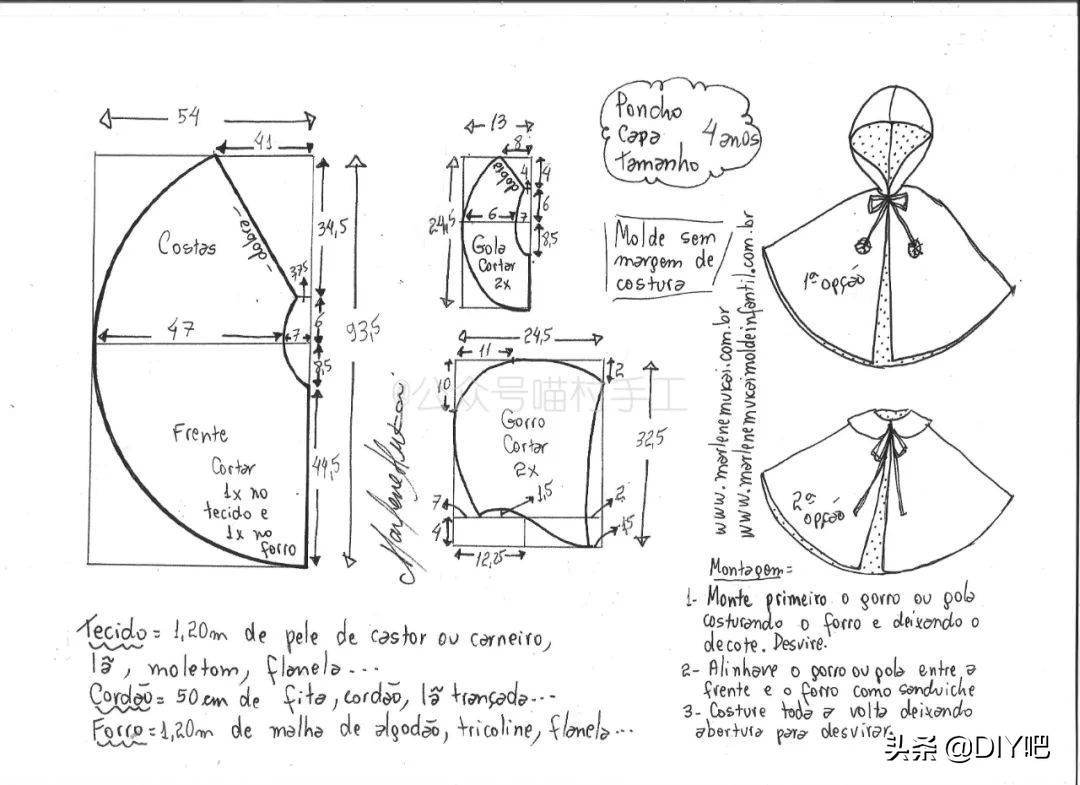 54
41
Costas
-dobra-
34,5
3,75
6
47
7
93,5
8,5
Frente
Cortar
1x no
tecido e
1x no
forro
44,5
13
8
4
4
dobra
6
24,5
6
7
8,5
Gola
Cortar
2x
Poncho
Capa
Tamanho
4 anos
Molde sem
margem de
costura
24,5
11
2
10
Gorro
Cortar
2x
32,5
1,5
7
2
4
1,5
12,25
@公众号喵村手工
www.marlenemukai.com.br
www.marlenemukaimoldeinfantil.com.br
1ª opção
2ª opção
Tecido = 1,20m de pele de castor ou carneiro,
lã, moletom, flanela...
Cordão = 50 cm de fita, cordão, lã trançada...
Forro = 1,20m de malha de algodão, tricoline, flanela...
Montagem =
1- Monte primeiro o gorro ou gola
costurando o forro e deixando o
decote. Desvire.
2- Alinhave o gorro ou gola entre a
frente e o forro como sanduiche
3- Costure toda a volta deixando
abertura para desvirar.
头条 @DIY吧